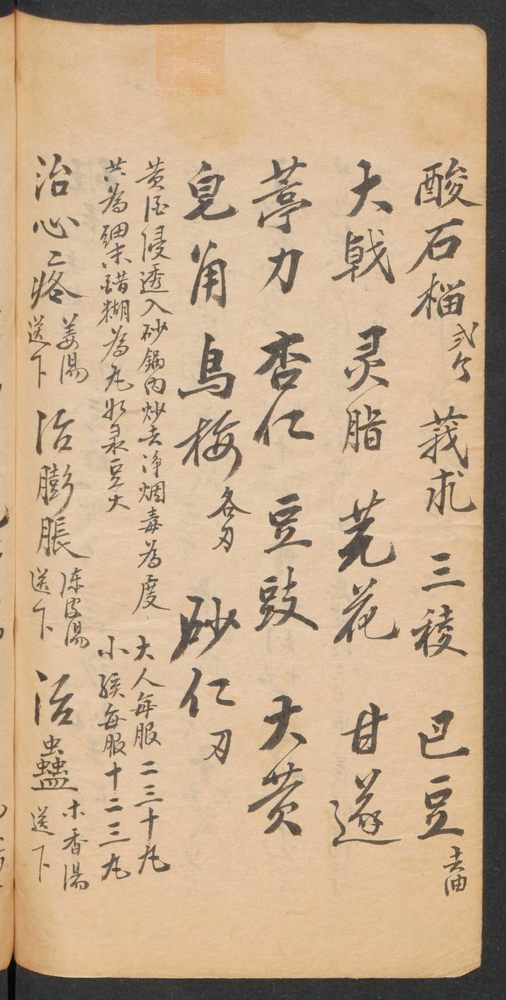 酸石榴 弍个 莪术 三稜 巴豆 去油
大戟 灵脂 芫花 甘遂
葶力 杏仁 豆豉 大黄
皂角 乌梅 各刃 砂仁 刃
黄酒浸透入砂锅内炒去净烟毒为度 大人每服二三十丸
共为细末醋糊为丸如彔豆大 小孩每服十二三丸
治心疼 姜汤送下 治膨胀 陈皮汤送下 治蟲蠱 木香湯送下